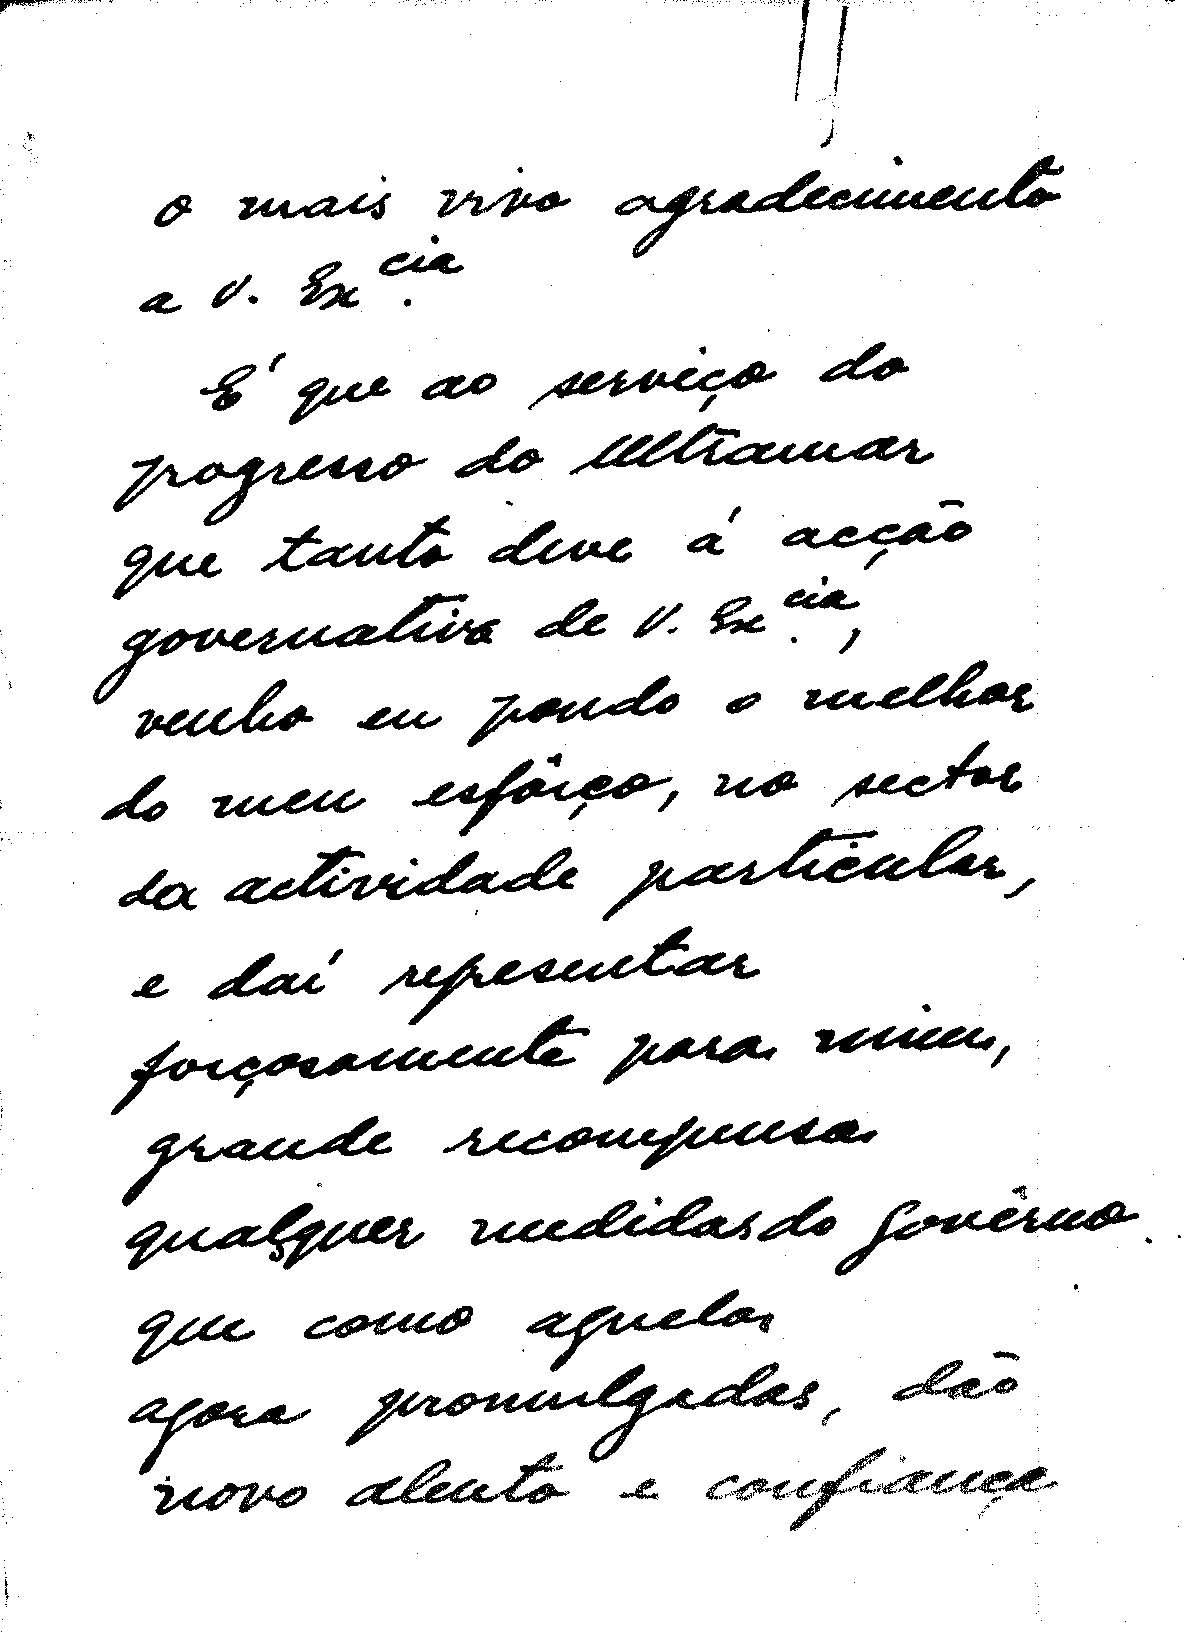 o mais vivo agradecimento
a V. Ex.cia
É que ao serviço do
progresso do Ultramar
que tanto deve á acção
governativa de V. Ex.cia,
venho eu pondo o melhor
do meu esfôrço, no sector
da actividade particular,
e daí representar
forçosamente para mim,
grande recompensa
quaesquer medidas do Govêrno
que como aquelas
agora promulgadas, dão
novo alento e confiança